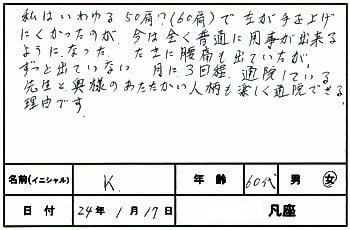 私はいわゆる50肩?(60肩)で左が手を上げ
にくかったのが、今は全く普通に用事が出来る
ようになった。たまに腰痛も出ていたが
ずっと出ていない 月に3回程、通院している
先生と奥様のあたたかい人柄も楽しく通院できる
理由です
名前(イニシャル) K. 年齢 60代 男 女
日付 24年1月17日 凡座